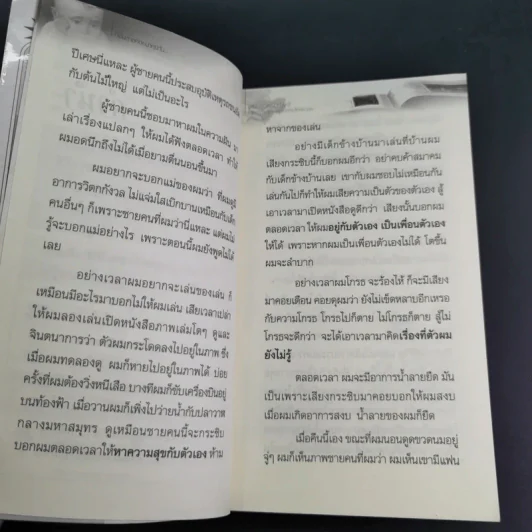 ปีเศษนี่แหละ ผู้ชายคนนี้ประสบอุบัติเหตุรถชนเข้า
กับต้นไม้ใหญ่ แต่ไม่เป็นอะไร
ผู้ชายคนนี้ชอบมาหาผมในความเงียบ มา
เล่าเรื่องแปลกๆ ให้ผมได้ฟังตลอดเวลา ทำให้
ผมอดนึกถึงไม่ได้เมื่อยามตื่นนอนขึ้นมา
ผมอยากจะบอกแม่ของผมว่า ที่ผมดูมี
อาการวิตกกังวล ไม่แจ่มใสเบิกบานเหมือนกับเด็ก
คนอื่นๆ ก็เพราะชายคนที่ผมว่านี่แหละ แต่ผมไม่
รู้จะบอกแม่อย่างไร เพราะตอนนี้ผมยังพูดไม่ได้
เลย
อย่างเวลาผมอยากจะเล่นของเล่น ก็
เหมือนมีอะไรมาบอกไม่ให้ผมเล่น เสียเวลาเปล่า
ให้ผมลองเล่นเปิดหนังสือภาพเล่มโตๆ ดูและ
จินตนาการว่า ตัวผมกระโดดลงไปอยู่ในภาพ ซึ่ง
เมื่อผมทดลองดู ผมก็หายไปอยู่ในภาพได้ บ่อย
ครั้งที่ผมต้องวิ่งหนีเสือ บางทีผมก็ขับเครื่องบินอยู่
บนท้องฟ้า เมื่อวานผมก็เพิ่งไปว่ายน้ำกับปลาวาฬ
กลางมหาสมุทร ดูเหมือนชายคนนี้จะกระซิบ
บอกผมตลอดเวลาให้หาความสุขกับตัวเอง ห้าม
หาจากของเล่น
อย่างมีเด็กข้างบ้านมาเล่นที่บ้านผม
เสียงกระซิบนี้ก็บอกผมอีกว่า อย่าคบค้าสมาคม
กับเด็กข้างบ้านเลย เขากับผมชอบไม่เหมือนกัน
เล่นกันไปก็ทำให้ผมเสียความเป็นตัวของตัวเอง สู้
เอาเวลามาเปิดหนังสือดูดีกว่า เสียงนั้นบอกผม
ตลอดเวลา ให้ผมอยู่กับตัวเอง เป็นเพื่อนตัวเอง
ให้ได้ เพราะหากผมเป็นเพื่อนตัวเองไม่ได้ โตขึ้น
ผมจะลำบาก
อย่างเวลาผมโกรธ จะร้องไห้ ก็จะมีเสียง
มาคอยเตือน คอยดุผมว่า ยังไม่เข็ดหลาบอีกเหรอ
กับความโกรธ โกรธไปก็ตาย ไม่โกรธก็ตาย สู้ไม่
โกรธจะดีกว่า จะได้เอาเวลามาคิดเรื่องที่ตัวผม
ยังไม่รู้
ตลอดเวลา ผมจะมีอาการน้ำลายยืด มัน
เป็นเพราะเสียงกระซิบมาคอยบอกให้ผมสงบ
เมื่อผมเกิดอาการสงบ น้ำลายของผมก็ยืด
เมื่อคืนนี้เอง ขณะที่ผมนอนดูดขวดนมอยู่
จู่ๆ ผมก็เห็นภาพชายคนที่ผมว่า ผมเห็นเขามีแฟน